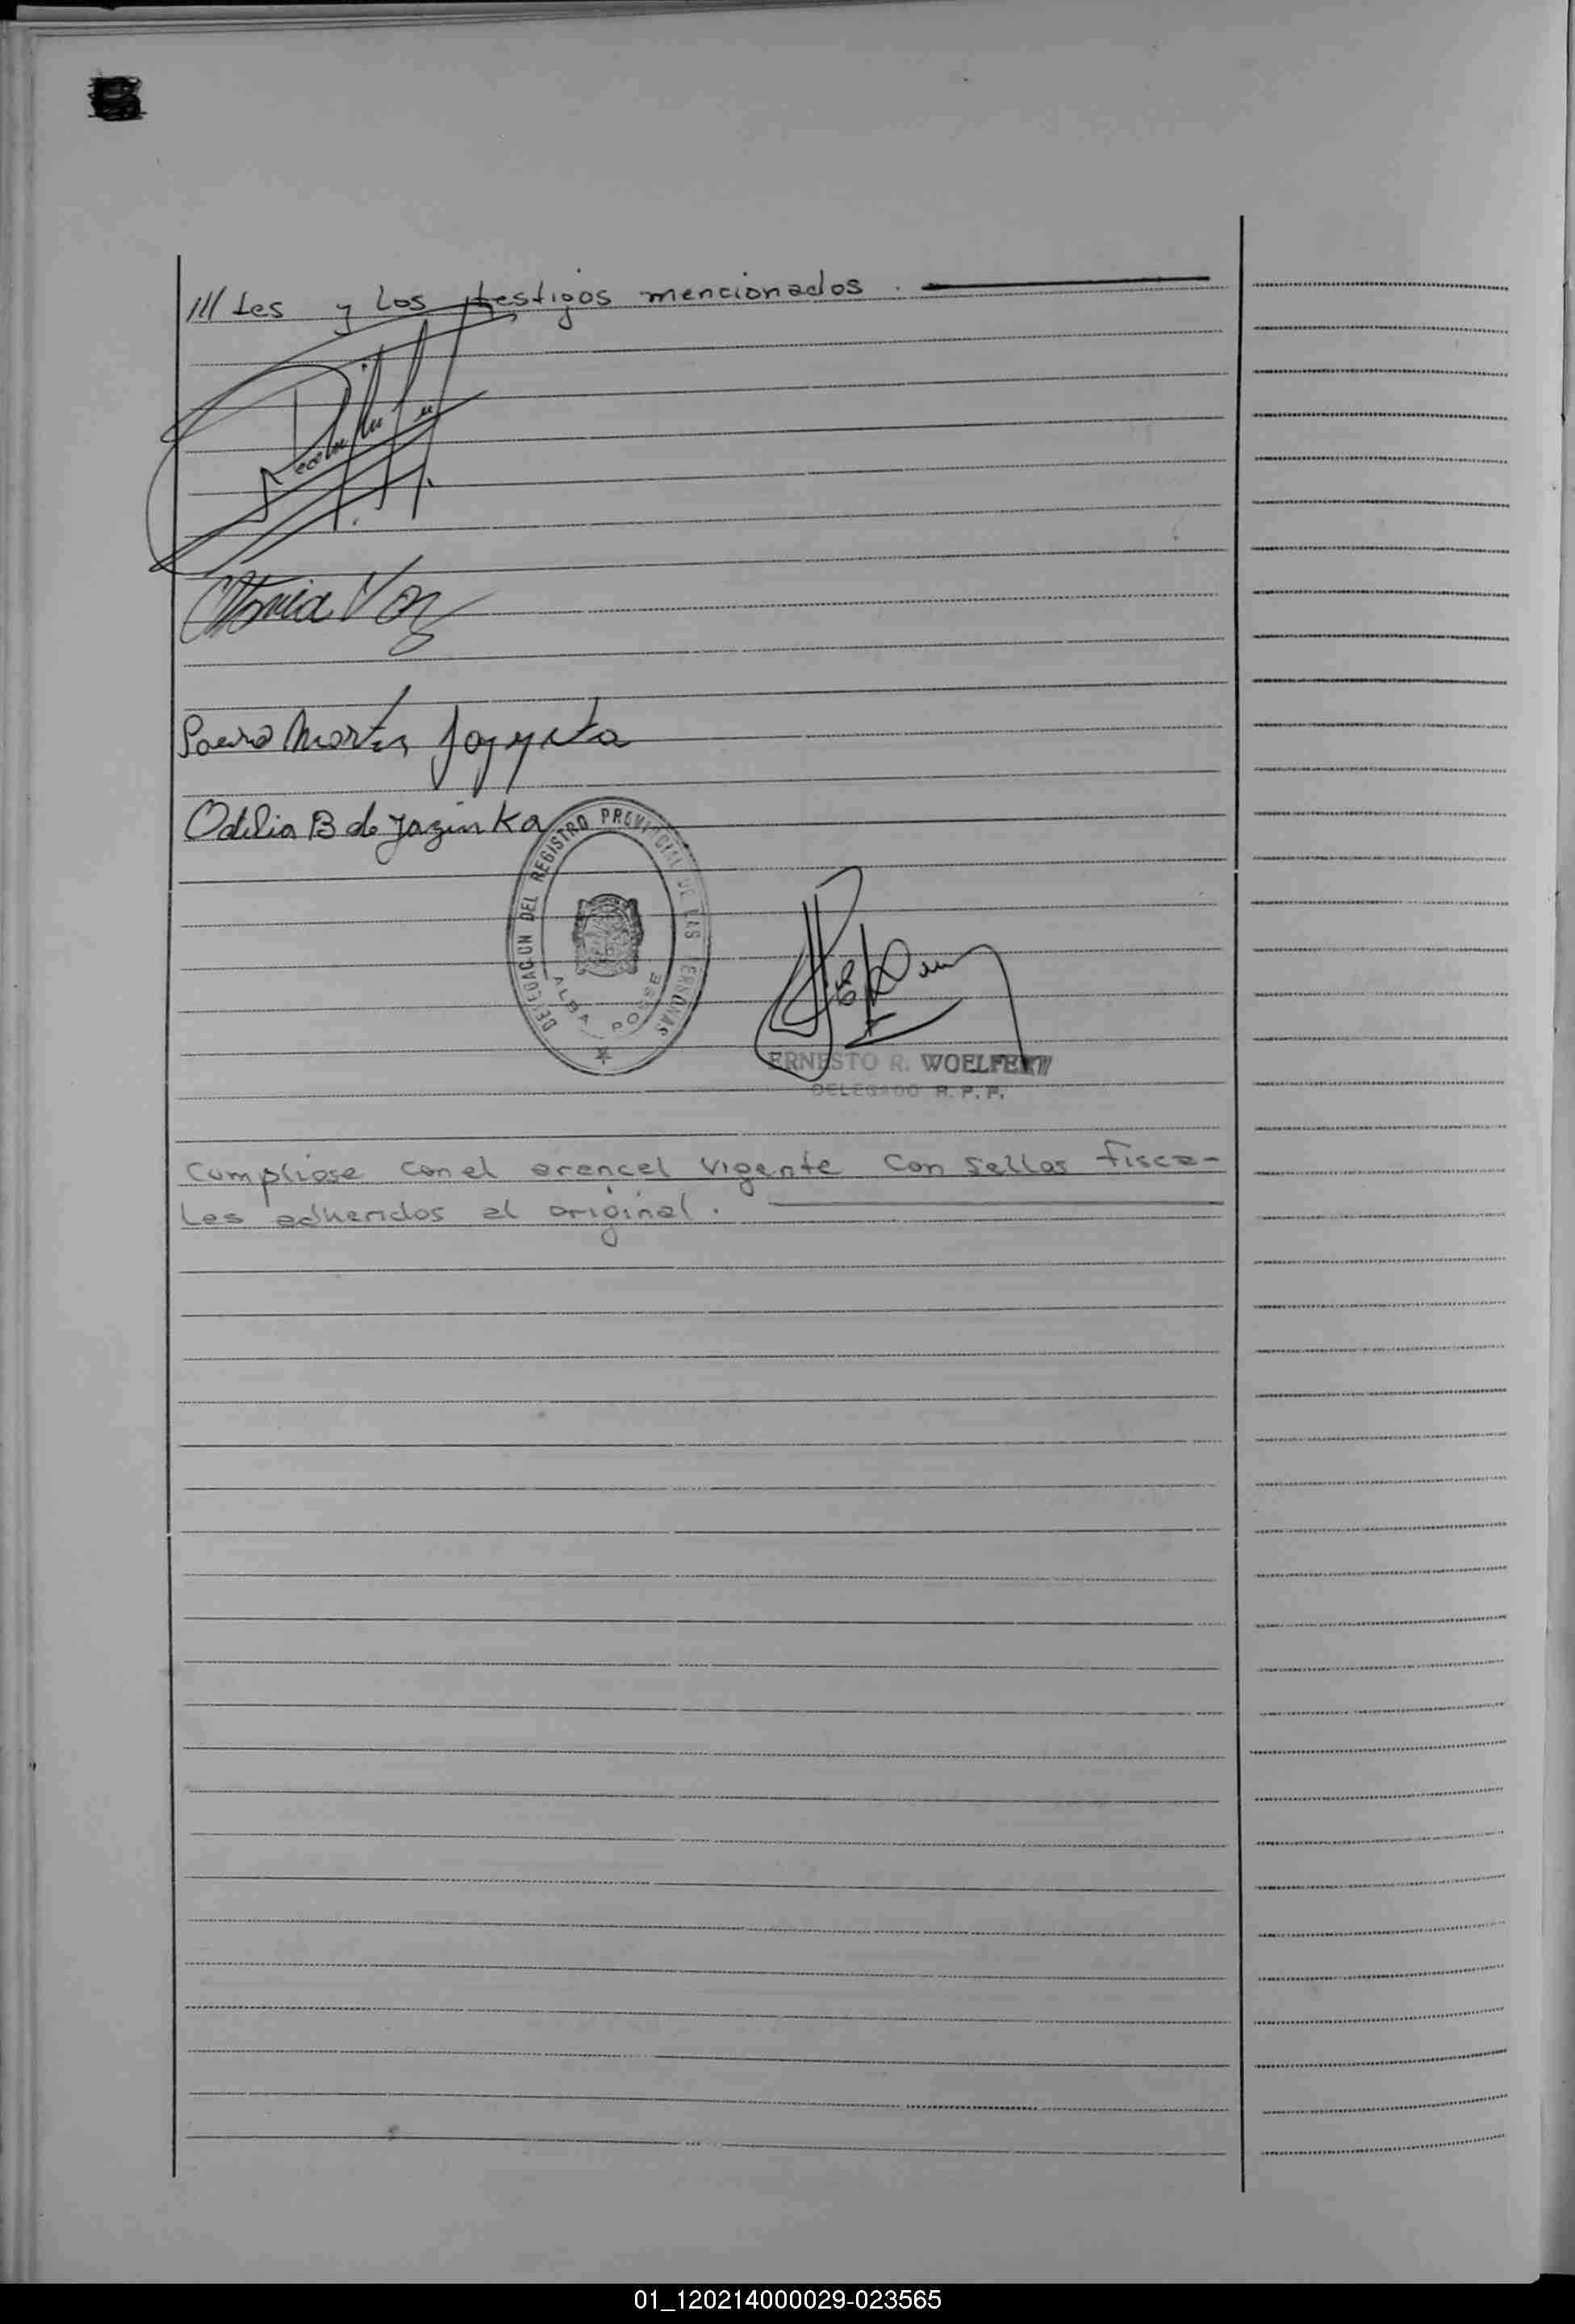 /// tes y los testigos mencionados.
Pedro Martin
Odilia B de Jazinka
DELEGACION DEL REGISTRO PROVINCIAL DE LAS PERSONAS
ALBA POSSE
ERNESTO R. WOELFERT
DELEGADO R. P. P.
Cumpliose con el arancel vigente con sellos fisca-
les adheridos al original.
01_120214000029-023565